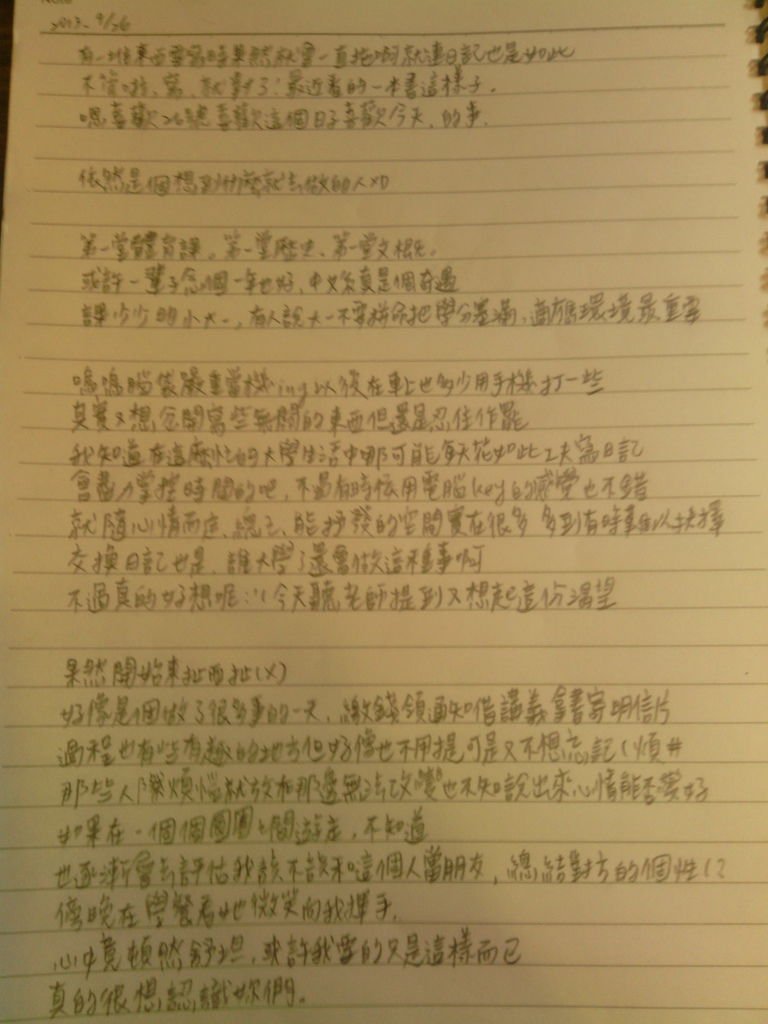 Note
2013. 9/26
有一堆東西要寫時果然就會一直拖啊就連日記也是如此
不管啦,寫,就對了!最近看的一本書這樣子。
嗯喜歡26號喜歡這個日子喜歡今天,的事.
依然是個想到什麼就去做的人XD
第一堂體育課。第一堂歷史、第一堂文概。
或許一輩子念個一年也好,中文系真是個奇遇
課少少的小大一,有人說大一不要拼命把學分塞滿,適應環境最重要
嗚嗚腦袋嚴重當機ing以後在車上也多少用手機打一些
其實又想念開寫些無關的東西但還是忍住作罷
我知道在這麼忙的大學生活中哪可能每天花如此工夫寫日記
會盡力掌控時間的吧,不過有時候用電腦key的感覺也不錯
就隨心情而定,總之,能抒發的空間實在很多 多到有時難以抉擇
交換日記也是,誰大學了還會做這種事啊
不過真的好想呢:'( 今天聽老師提到又想起這份渴望
果然開始東扯西扯(X)
好像是個做了很多事的一天,繳錢領通知借講義拿書寄明信片
過程也有些有趣的地方但好像也不用提可是又不想忘記(煩#
那些人際煩惱就放在那邊無法改變也不知說出來心情能否變好
如果在一個個團團之間遊走,不知道
也逐漸會去評估我該不該和這個人當朋友,總結對方的個性(?
傍晚在學餐看她微笑向我揮手.
心中竟頓然舒坦,或許我要的只是這樣而已
真的很想認識妳們。